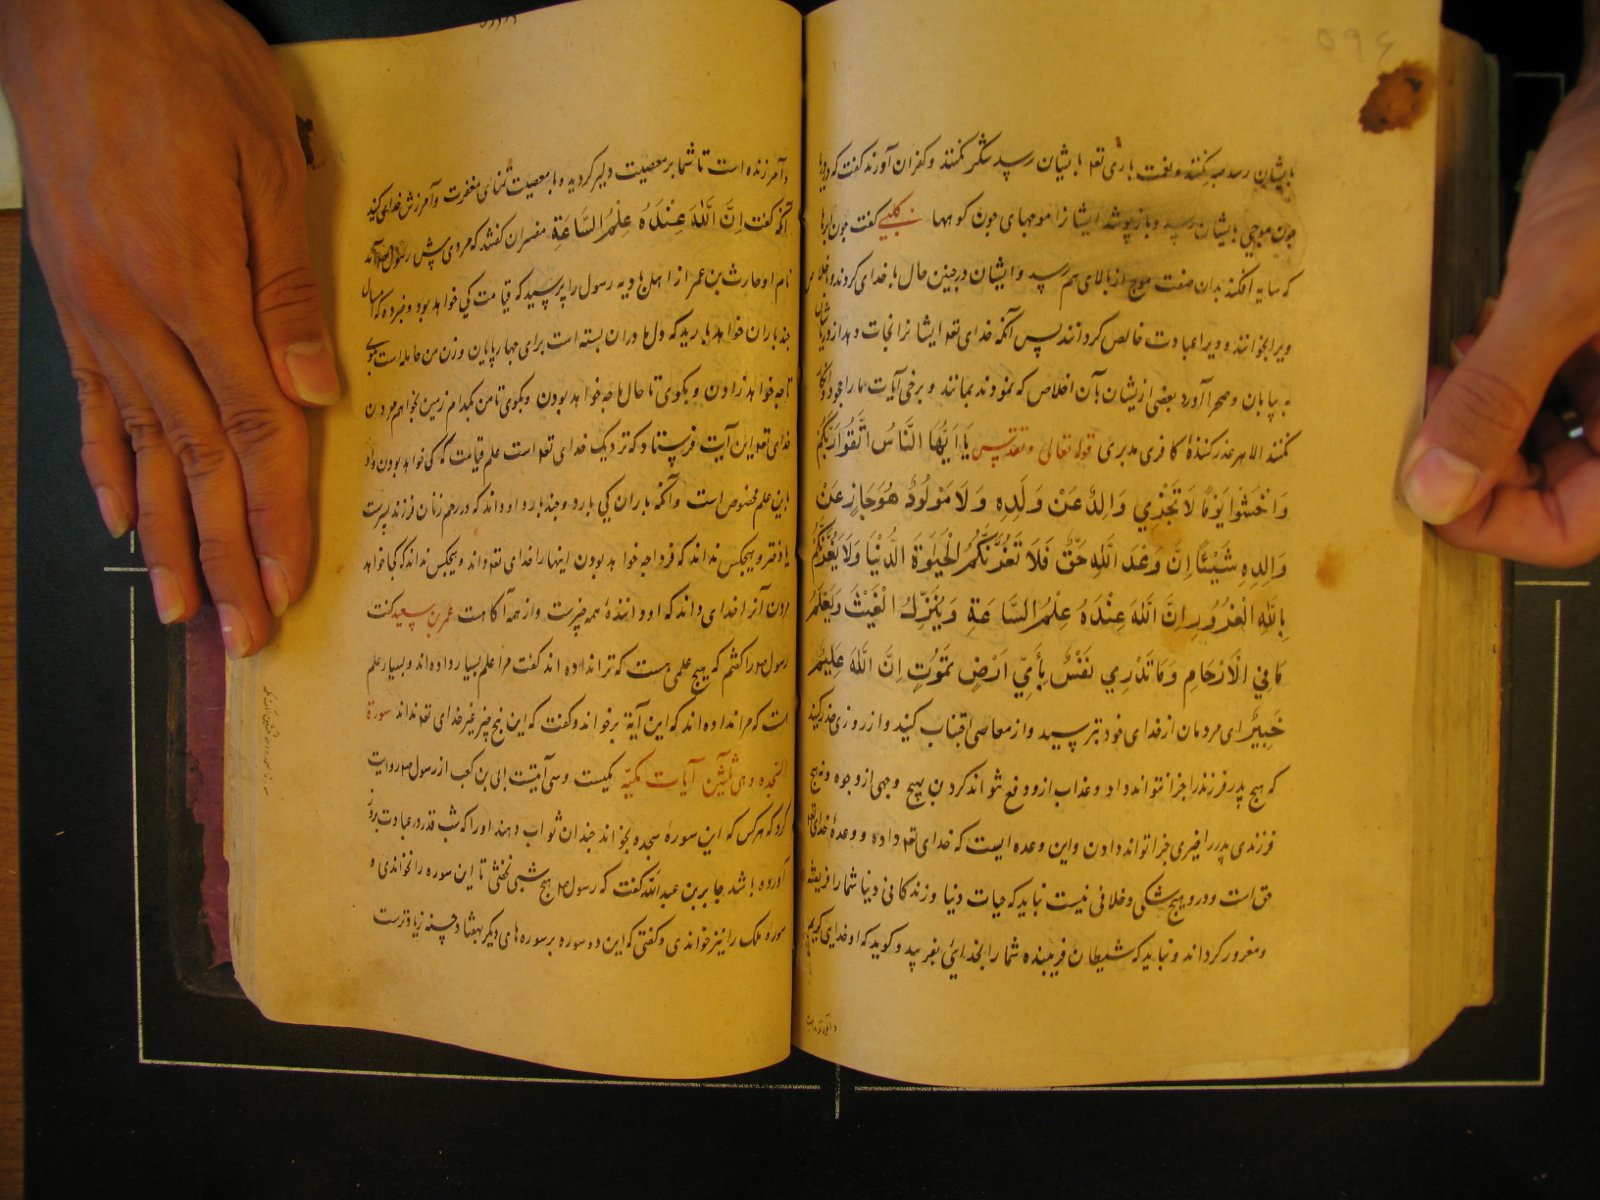 ۵۹۴
بایشان رسد صبر نکنند و نعمت باری تعه بایشان رسید شکر نکنند و کفران آورند گفت که در دریا
چون موجی بایشان رسید و باز پوشد ایشانرا موجهای چون کوهها کلبی گفت چون ابرها
که سایه افکند بدان صفت موج از بالای هم رسید و ایشان در چنین حال با خدای کردند و
ویرا بخوانند و ویرا عبادت خالص کردانند پس آنکه خدای تعه ایشانرا نجات دهد از دریا
به بیابان و صحرا آورد بعضی ازیشان بآن اخلاص که نمودند بمانند و برخی آیات ما را جحود و انکار
نکنند الا هر غدر کنندهٔ کافری مدبری قوله تعالی و تقدس یَا اَیُّهَا النَّاسُ اتَّقُوا رَبَّکُمْ
وَاخْشَوْا یَوْمًا لَا تَجْزِی وَالِدٌ عَنْ وَلَدِهِ وَلَا مَوْلُودٌ هُوَ جَازٍ عَنْ
وَالِدِهِ شَیْئًا اِنَّ وَعْدَ اللَّهِ حَقٌّ فَلَا تَغُرَّنَّکُمُ الْحَیَاوةُ الدُّنْیَا وَلَا یَغُرَّنَّکُمْ
بِاللَّهِ الْغَرُورُ اِنَّ اللَّهَ عِنْدَهُ عِلْمُ السَّاعَةِ وَیُنَزِّلُ الْغَیْثَ وَیَعْلَمُ
مَا فِی الْاَرْحَامِ وَمَا تَدْرِی نَفْسٌ بِأَیِّ اَرْضٍ تَمُوتُ اِنَّ اللَّهَ عَلِیمٌ
خَبِیرٌ ای مردمان از خدای خود بترسید و از معاصی اجتناب کنید و از روزی حذر کنید
که هیچ پدر فرزند را جزا نتواند داد و عذاب ازو دفع نتواند کرد بهیچ وجهی از وجوه و نه هیچ
فرزندی پدر را چیزی جزا تواند دادن و این وعده ایست که خدای تعه داده و وعدهٔ خدای تعه
حق است و درو هیچ شکی و خلافی نیست نباید که حیات دنیا و زندکانی دنیا شما را فریفته
و مغرور کرداند و نباید که شیطان فریبنده شما را بخدای بفریبد و کوید که او خدای کریم
و آمرزنده است تا شما بر معصیت دلیر کردید و با معصیت تمنای مغفرت و آمرزش خدای کنید
آنکه گفت اِنَّ اللَّهَ عِنْدَهُ عِلْمُ السَّاعَةِ مفسران گفتند که مردی پیش رسول آمد
نام او حارث بن عمر از اهل بادیه رسول را پرسید که قیامت کی خواهد بود و خبر ده که امسال
چند باران خواهد بارید که دل ما در آن بسته است برای چهارپایان و زن من حامله است
تا چه خواهد زادن و بکوی تا حال ما چه خواهد بودن و بکوی تا من بکدام زمین بخواهم مردن
خدای تعه این آیت فرستاد که نزدیک خدای تعه است علم قیامت که کی خواهد بودن و او
باین علم مخصوص است و آنکه باران کی بارد و چند بارد او داند که در رحم زنان فرزند پسرست
یا دختر و هیچکس نداند که فردا چه خواهد بودن اینها را خدای تعه داند و هیچکس نداند که کجا خواهد
مردن آنرا خدای داند که او دانندهٔ همه چیزست و از همه آکاهست عمر بن سعید کفت
رسول را گفتم که هیچ علمی هست که ترا نداده اند کفت مرا علم بسیار داده اند و بسیار علم
است که مرا نداده اند که این آیة برخواند و کفت که این پنج چیز غیر خدای تعه نداند سورة
السجده و هی ثلثین آیات مکیّه مکیست و سی آیتست ابی بن کعب از رسول روایت
کرد که هر کس که این سورهٔ سجده بخواند چندان ثواب دهند او را که شب قدر در عبادت بروز
آورده باشد جابر بن عبدالله کفت که رسول هیچ شبی نخفتی تا این سوره را نخواندی و
سوره ملک را نیز خواندی و کفتی که این دو سوره بر سوره های دیکر بهفتاد حسنه زیادترست